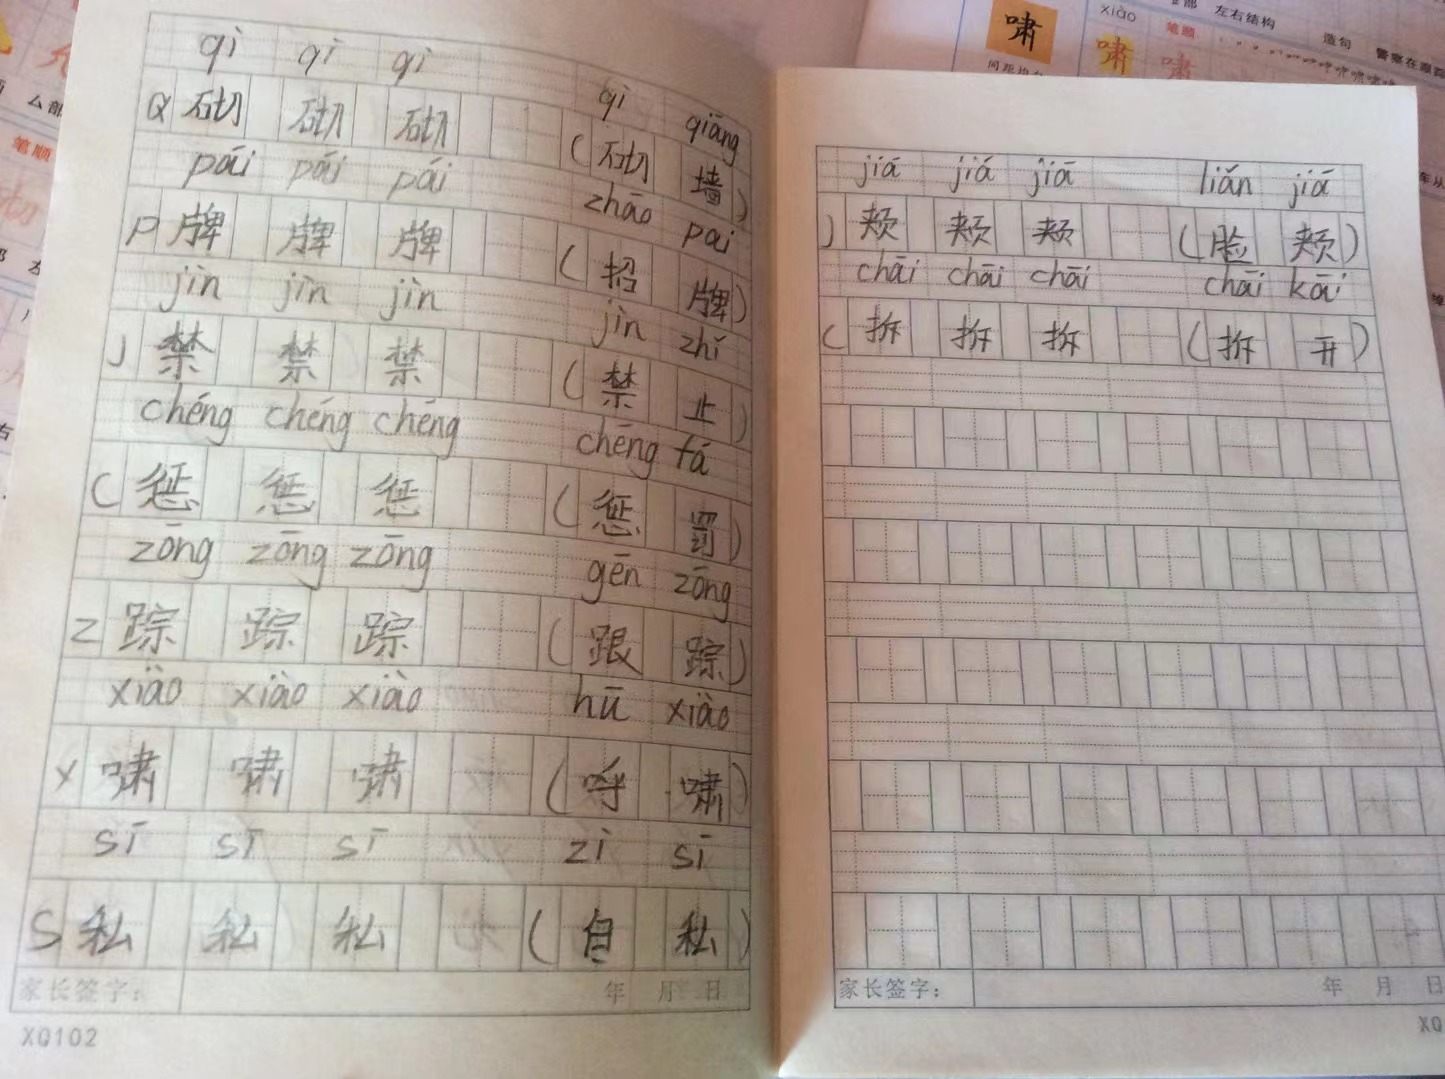 qì qì qì qì qiāng
Q 砌 砌 砌 (砌 墙)
pái pái pái zhāo pai
P 牌 牌 牌 (招 牌)
jìn jìn jìn jìn zhí
J 禁 禁 禁 (禁 止)
chéng chéng chéng chēng fá
C 惩 惩 惩 (惩 罚)
zōng zōng zōng gēn zōng
Z 踪 踪 踪 (跟 踪)
xiào xiào xiào hū xiào
X 啸 啸 啸 (呼 啸)
sī sī sī zì sī
S 私 私 私 (自 私)
家长签字: 年 月 日
XQ102
jiá jiá jiā liǎn jiá
J 颊 颊 颊 (脸 颊)
chāi chāi chāi chāi kāi
C 拆 拆 拆 (拆 开)
家长签字: 年 月 日
XQ
啸
xiào
部 左右结构
笔顺
造句
警察在跟踪
啸 啸
间距均匀
厶部
笔顺